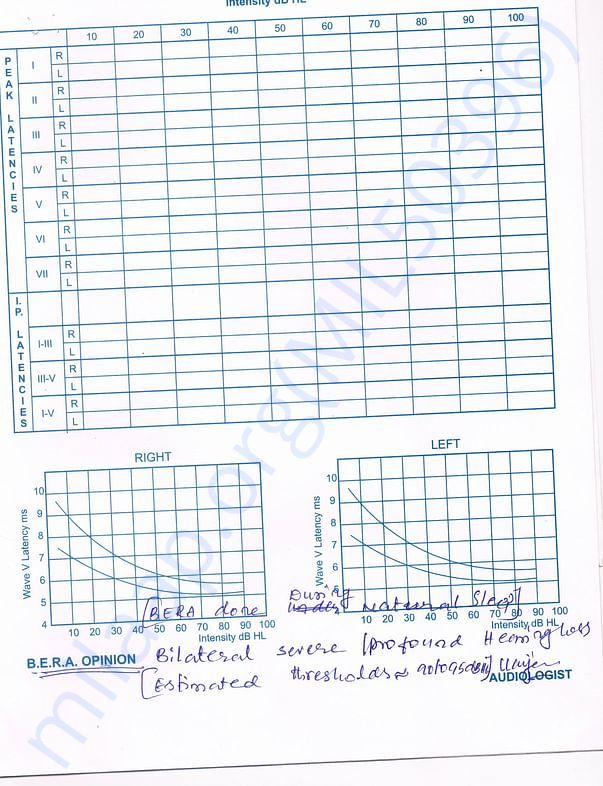 Intensity dB HL
10 20 30 40 50 60 70 80 90 100
PEAK LATENCIES
I R
L
II R
L
III R
L
IV R
L
V R
L
VI R
L
VII R
L
I.P. LATENCIES
I-III R
L
III-V R
L
I-V R
L
RIGHT
Wave V Latency ms
10
9
8
7
6
5
4
10 20 30 40 50 60 70 80 90 100
Intensity dB HL
LEFT
Wave V Latency ms
10
9
8
7
6
5
10 20 30 40 50 60 70 80 90 100
Intensity dB HL
(BERA done During under Natural Sleep)
B.E.R.A. OPINION Bilateral severe / profound Hearing loss
[Estimated thresholds ≈ 90 to 95 dB
AUDIOLOGIST
milaap.org(MIL50396)